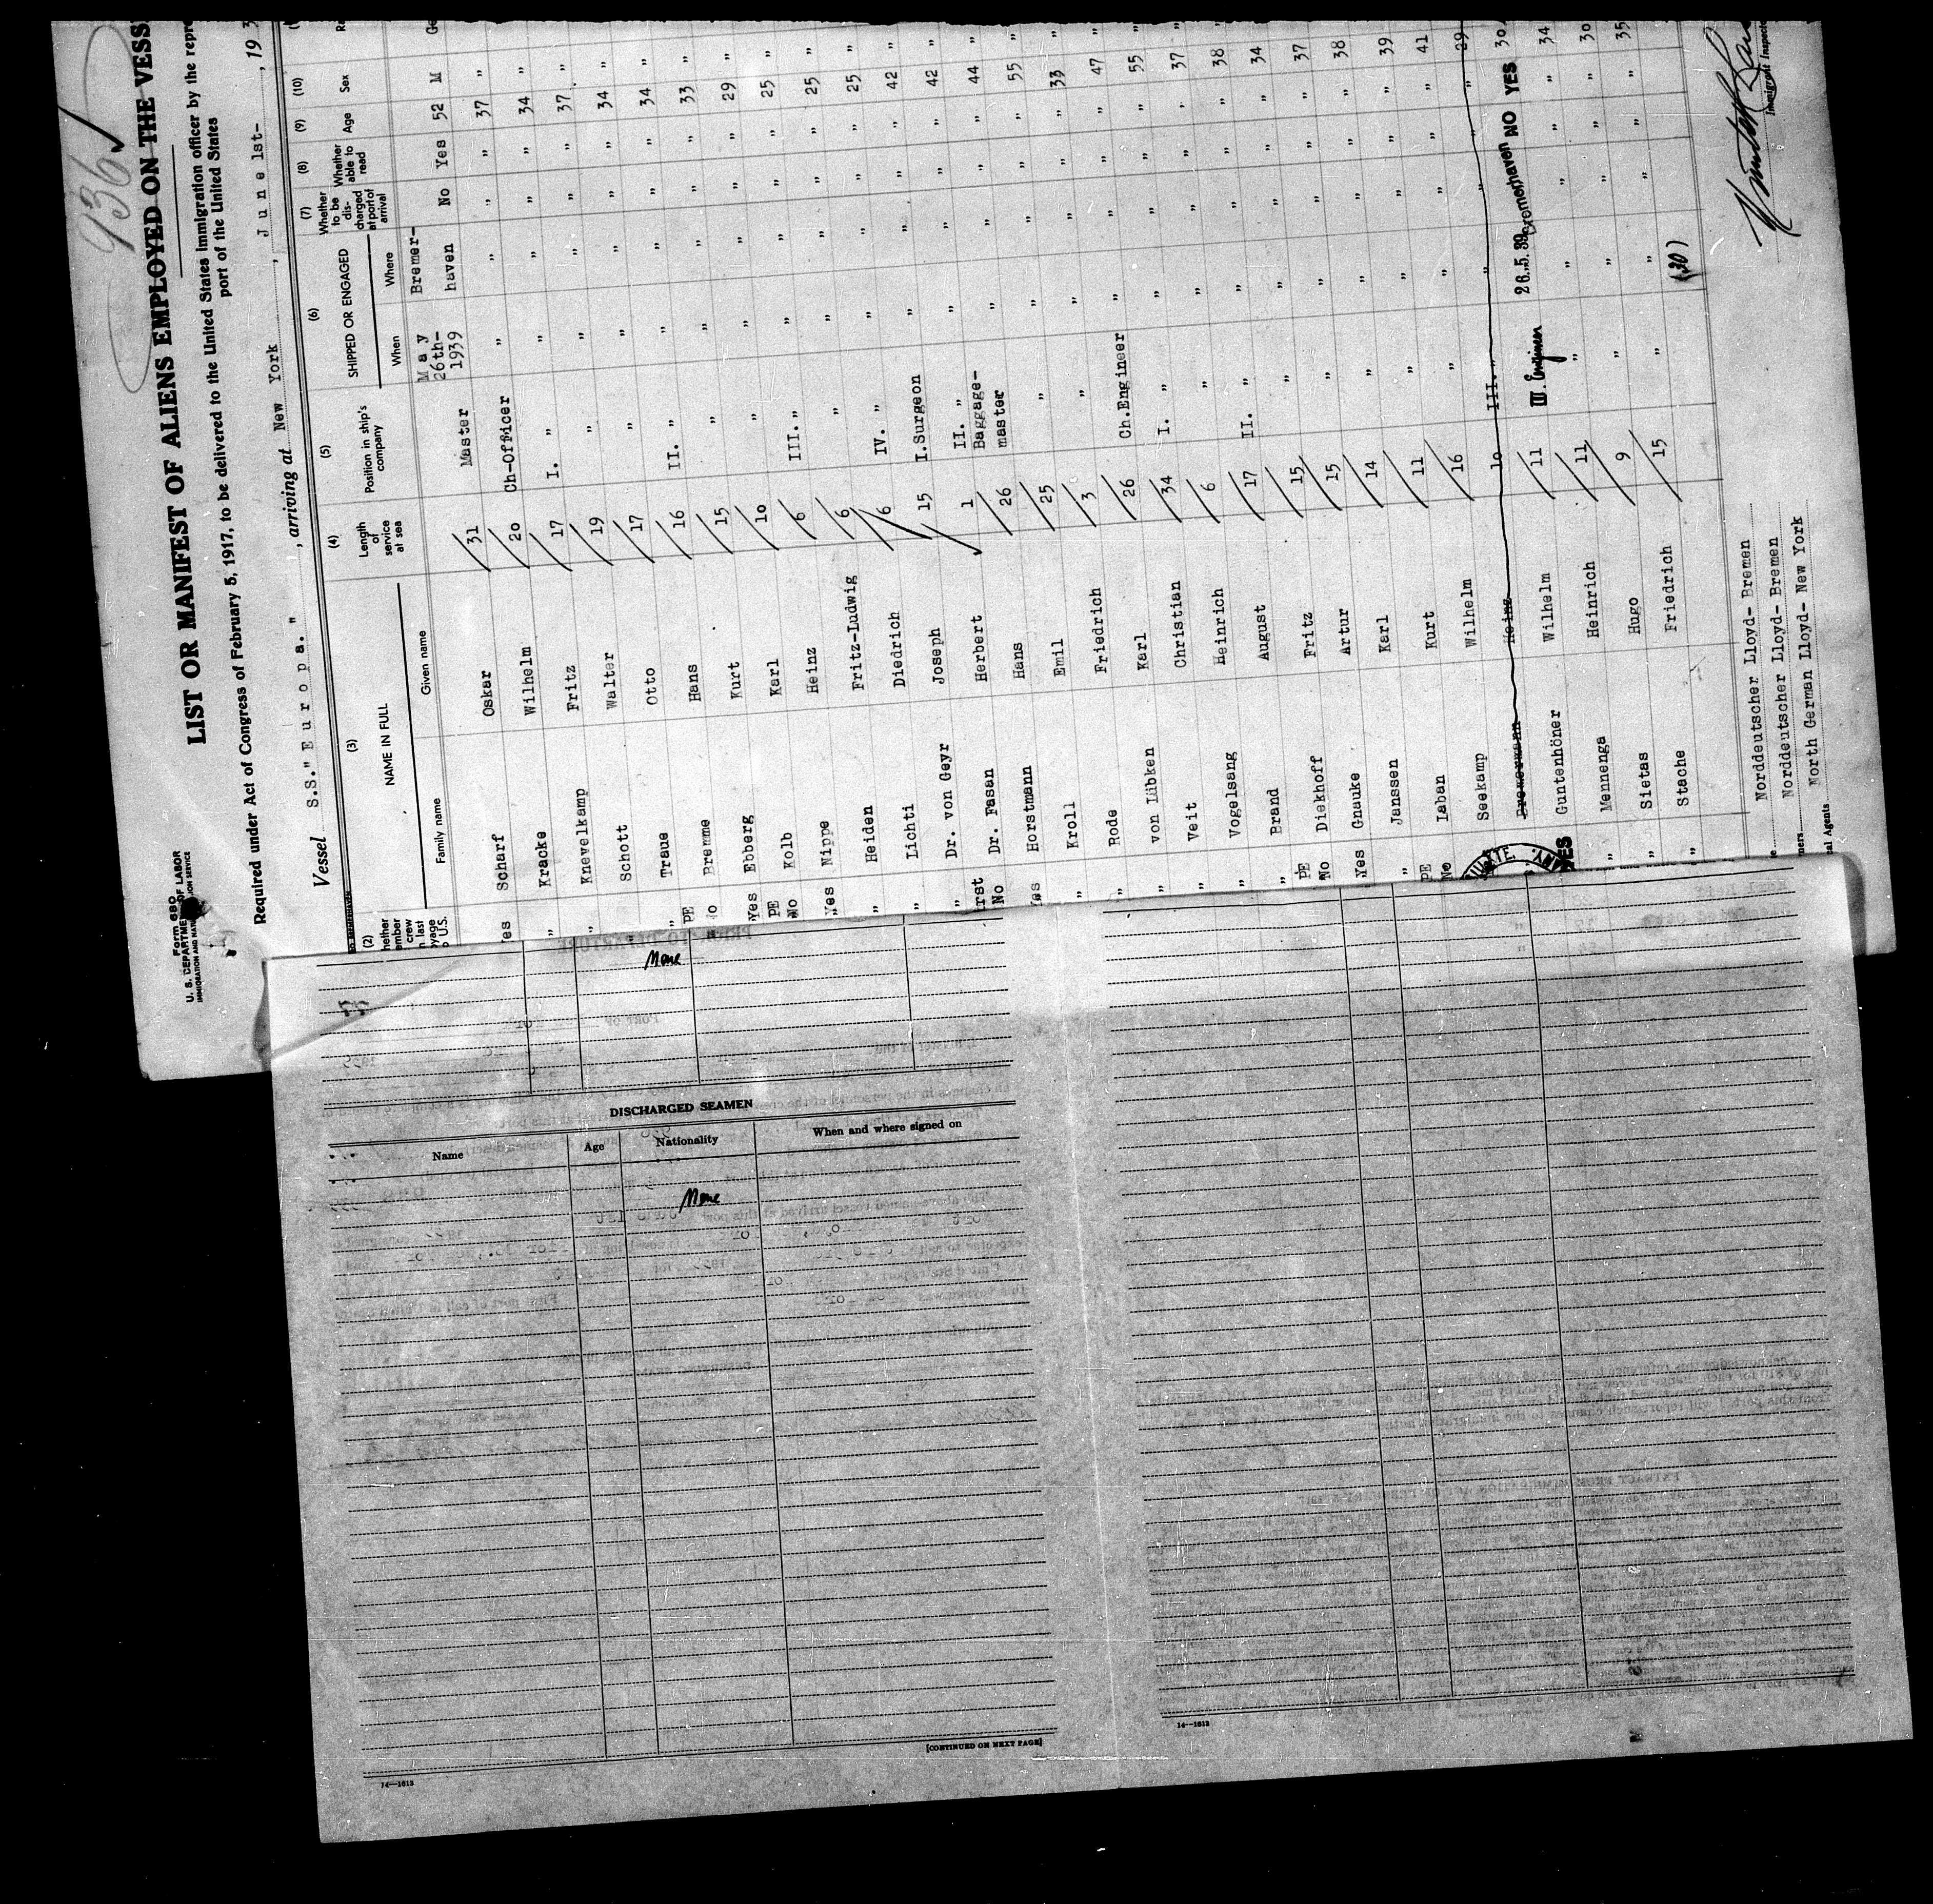 936 ✓
Form 680
U. S. DEPARTMENT OF LABOR
IMMIGRATION AND NATURALIZATION SERVICE
LIST OR MANIFEST OF ALIENS EMPLOYED ON THE VESS
Required under Act of Congress of February 5, 1917, to be delivered to the United States immigration officer by the repre
port of the United States
Vessel S.S." E u r o p a. " , arriving at New York , J u n e 1st- , 19 3
(2) (3) (4) (5) (6) (7) (8) (9) (10)
NAME IN FULL Length of service at sea Position in ship's company SHIPPED OR ENGAGED Whether to be discharged at port of arrival Whether able to read Age Sex
Family name Given name When Where
Yes Scharf Oskar 31 Master May 26th- 1939 Bremer-haven No Yes 52 M Ge
" Kracke Wilhelm 20 Ch-Officer " " " " 37 "
" Knevelkamp Fritz 17 I. " " " " " 34 "
" Schott Walter 19 " " " " " 37 "
" Traue Otto 17 " " " " " 34 "
PE No Bremme Hans 16 II. " " " " " 34 "
Yes Ebberg Kurt 15 " " " " " 33 "
PE No Kolb Karl 10 " " " " " 29 "
Yes Nippe Heinz 6 III. " " " " " 25 "
" Heiden Fritz-Ludwig 6 " " " " " 25 "
" Lichti Diedrich 6 IV. " " " " " 25 "
" Dr. von Geyr Joseph 15 I.Surgeon " " " " 42 "
No Dr. Fasan Herbert 1 II. " " " " " 42 "
Yes Horstmann Hans 26 Baggage-master " " " " 44 "
" Kroll Emil 25 " " " " " 55 "
" Rode Friedrich 3 " " " " " 33 "
" von Lübken Karl 26 Ch.Engineer " " " " 47 "
" Veit Christian 34 I. " " " " " 55 "
" Vogelsang Heinrich 6 " " " " " 37 "
" Brand August 17 II. " " " " " 38 "
PE No Diekhoff Fritz 15 " " " " " 34 "
Yes Gnauke Artur 15 " " " " " 37 "
" Janssen Karl 14 " " " " " 38 "
PE No Laban Kurt 11 " " " " " 39 "
Seekamp Wilhelm 16 " " " " " 41 "
Bremermann Heinz 10 III. " " " " " 29
YES Guntenhöner Wilhelm 11 III. Engineer 26.5.39 Bremerhaven NO YES 30
" Mennenga Heinrich 11 " " " " 34
" Sietas Hugo 9 " " " " 30
" Stache Friedrich 15 " " " " 35
(30)
Norddeutscher Lloyd- Bremen
Norddeutscher Lloyd- Bremen
North German Lloyd- New York
Immigrant Inspector
None
DISCHARGED SEAMEN
Name Age Nationality When and where signed on
None
[CONTINUED ON NEXT PAGE]
14—1613
14—1613